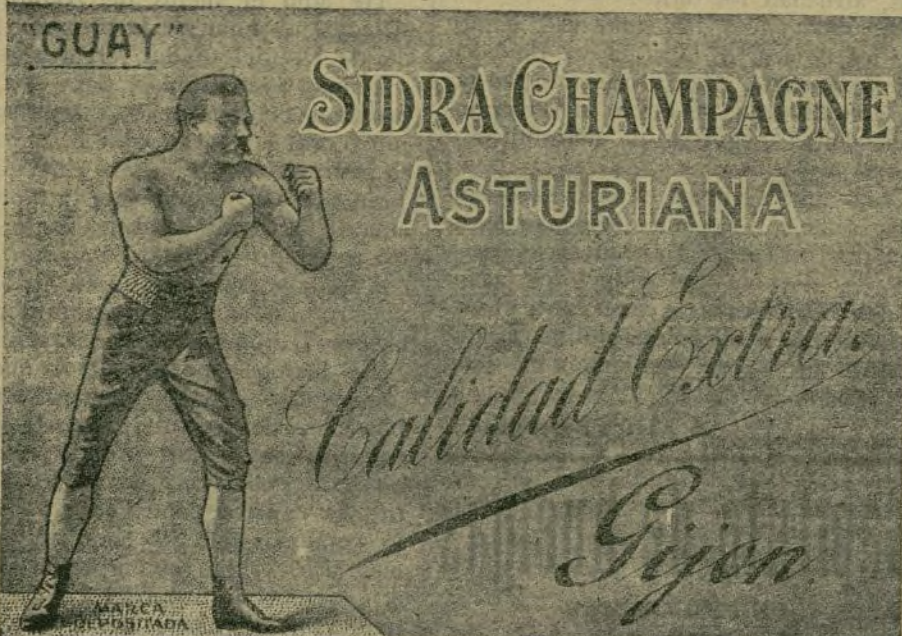 "GUAY"
SIDRA CHAMPAGNE
ASTURIANA
Calidad Extra.
Gijon
MARCA
DEPOSITADA